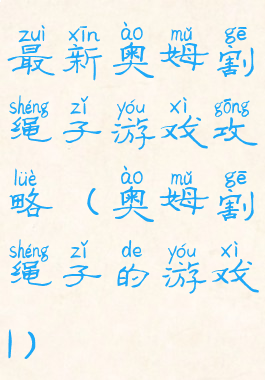 zuì xīn ào mǔ gē
最新奥姆割
shéng zǐ yóu xì gōng
绳子游戏攻
lüè ào mǔ gē
略(奥姆割
shéng zǐ de yóu xì
绳子的游戏
1)